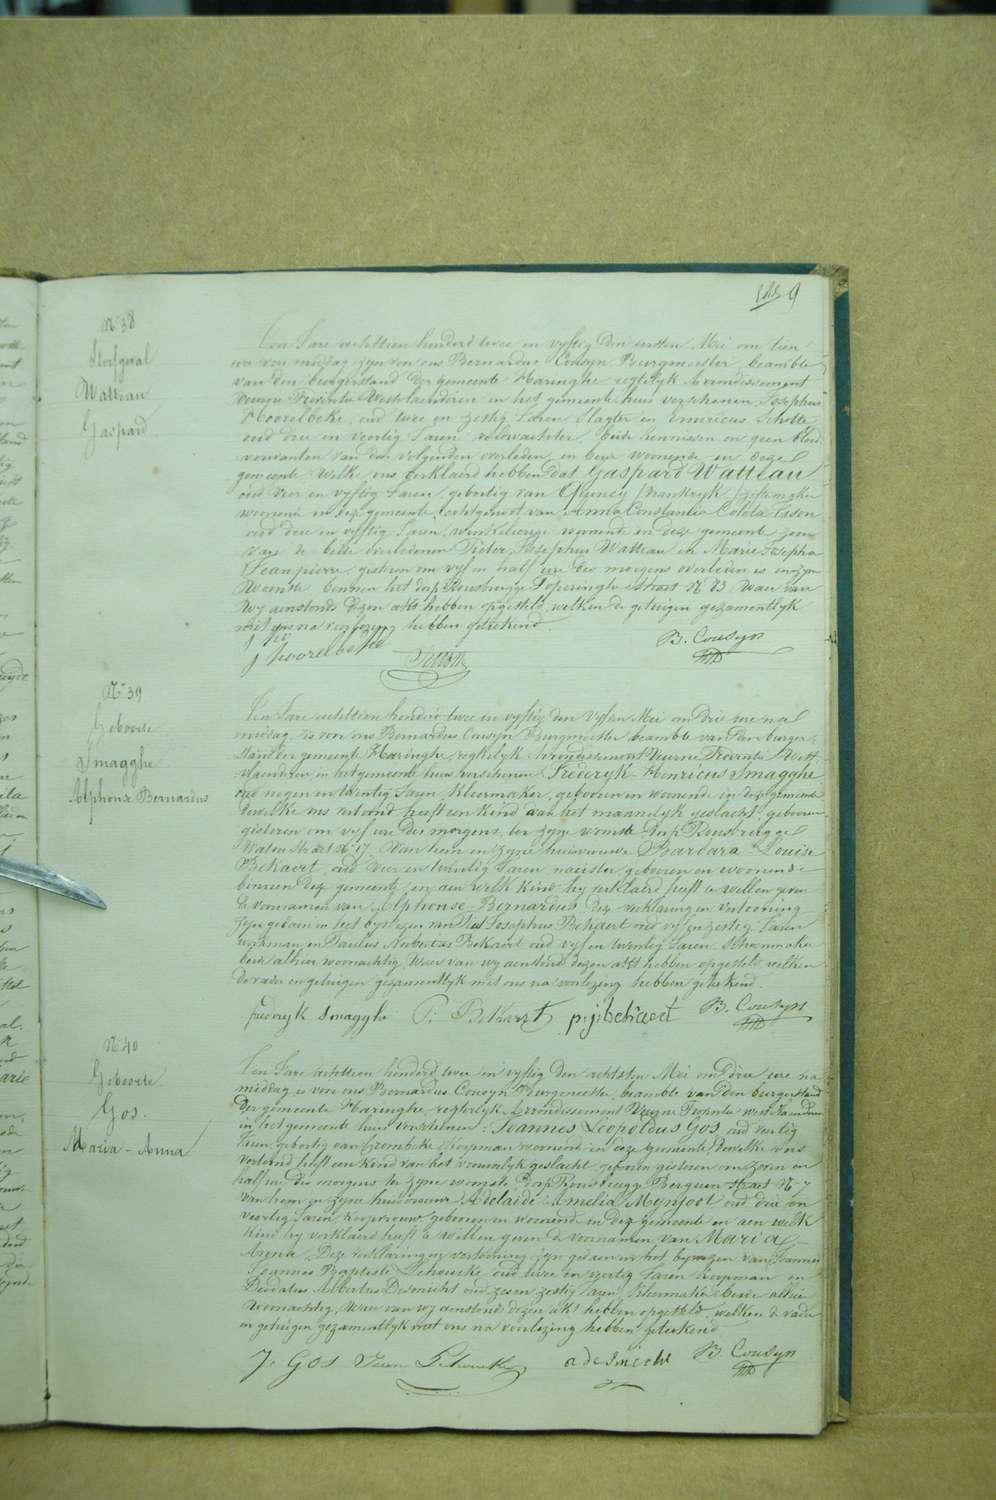 9
N° 38
Sterfgeval
Watteau
Gaspard
Ten Jare achttien honderd twee en vyftig den eersten Mei om tien
ure voor middag zyn voor ons Bernardus Cousyn Burgmeester beambte
van den burgerstand der gemeente Haringhe regtelyk Arrondissement
Veurne Provintie Westvlaenderen in het gemeente huis verschenen Josephus
Hoorelbeke, oud twee en zestig Jaren Slagter en Emericus Schotte
oud drie en veertig Jaren veldwachter, beide kennissen en geen bloed
verwanten van den volgenden overleden, en beide woonende in deze
gemeente. Welke ons verklaerd hebben dat Gaspard Watteau
oud vier en vyftig Jaren, geboortig van Quincy frankryk
woonende in deze gemeente, echtgenoot van Anna Constantia Coleta
oud drie en vyftig Jaren, winkelierige woonende in deze gemeente zoon
van de beide overledenen Pieter Josephus Watteau en Marie Josepha
Jeanpierre, gisteren om vyf en half ure des morgens overleden is in zyn
Woonste binnen het dorp Rousbrugge Poperinghe straet N° 83 Waer van
Wy aenstonds dezen akt hebben opgesteld, welken de getuigen gezamentlyk
met ons na voorlezing hebben geteekend.
J hoorelbeke
Schotte
B. Cousyn
N° 39
Geboorte
Smagghe
Alphonse Bernardus
Ten Jare achttien honderd twee en vyftig den vyfden Mei om drie ure na
middag is voor ons Bernardus Cousyn Burgmeester beambte van den burger
stand der gemeente Haringhe, regtelyk Arrondissement Veurne Provintie West
vlaenderen, in het gemeente huis verschenen Frederyk-Henricus Smagghe
oud negen en twintig Jaren, kleermaker, geboren en woonende in deze gemeente
dewelke ons vertoond heeft een kind van het mannelyk geslacht, geboren
gisteren om vyf ure des morgens, ter zyne woonste dorp Rousbrugge
Waten Straet N° 17. Van hem en zyne huisvrouwe Barbara Louise
Bekaert, oud vier en twintig Jaren naeister, geboren en woonende
binnen deze gemeente, en aen welk kind hy verklaerd heeft te willen geven
de voornamen van Alphonse-Bernardus, deze verklaring en vertooning
zyn gedaen in het bywezen van Josephus Bekaert oud vyf en zestig Jaren
werkman, en Paulus Aubertus Bekaert oud vyf en twintig Jaren, schoenmaker
beide alhier woonachtig, Waer van wy aenstonds dezen akt hebben opgesteld welken
de vader en getuigen gezamentlyk met ons na voorlezing hebben geteekend.
frederyk Smagghe
P. Bekaert
p.j. bekaert
B. Cousyn
N° 40
Geboorte
Gos.
Maria - Anna
Ten Jare achttien honderd twee en vyftig den achtsten Mei om drie ure na
middag is voor ons Bernardus Cousyn Burgmeester, beambte van den burgerstand
der gemeente Haringhe, regterlyk Arrondissement Veurne Provintie west vlaenderen
in het gemeente huis verschenen: Joannes Leopoldus Gos oud veertig
Jaren, geboortig van Crombeke, koopman woonende in deze gemeente, Dewelke ons
vertoond heeft een kind van het vrouwelyk geslacht, geboren gisteren om zeven en
half ure des morgens ter zyne woonste Dorp Rousbrugge Berguen straet N° 7
van hem en zyne huisvrouwe Adelaide Amelia Meynfoot oud drie en
veertig Jaren, koopvrouw geboren en woonende in deze gemeente en aen welk
kind hy verklaerd heeft te willen geven de voornamen van Maria
Anna, Deze verklaring en vertooning zyn gedaen in het bywezen van Joannes
Joannes Baptiste Schoucke, oud twee en veertig Jaren koopman en
Deodatus Albertus Desmicht oud zeven zestig Jaren, beide alhier
Woonachtig, Waer van wy aenstonds dezen akt hebben opgesteld, welken de vader
en getuigen gezamentlyk met ons na voorlezing hebben geteekend
J. Gos
Jean Schoucke
a desmicht
B. Cousyn